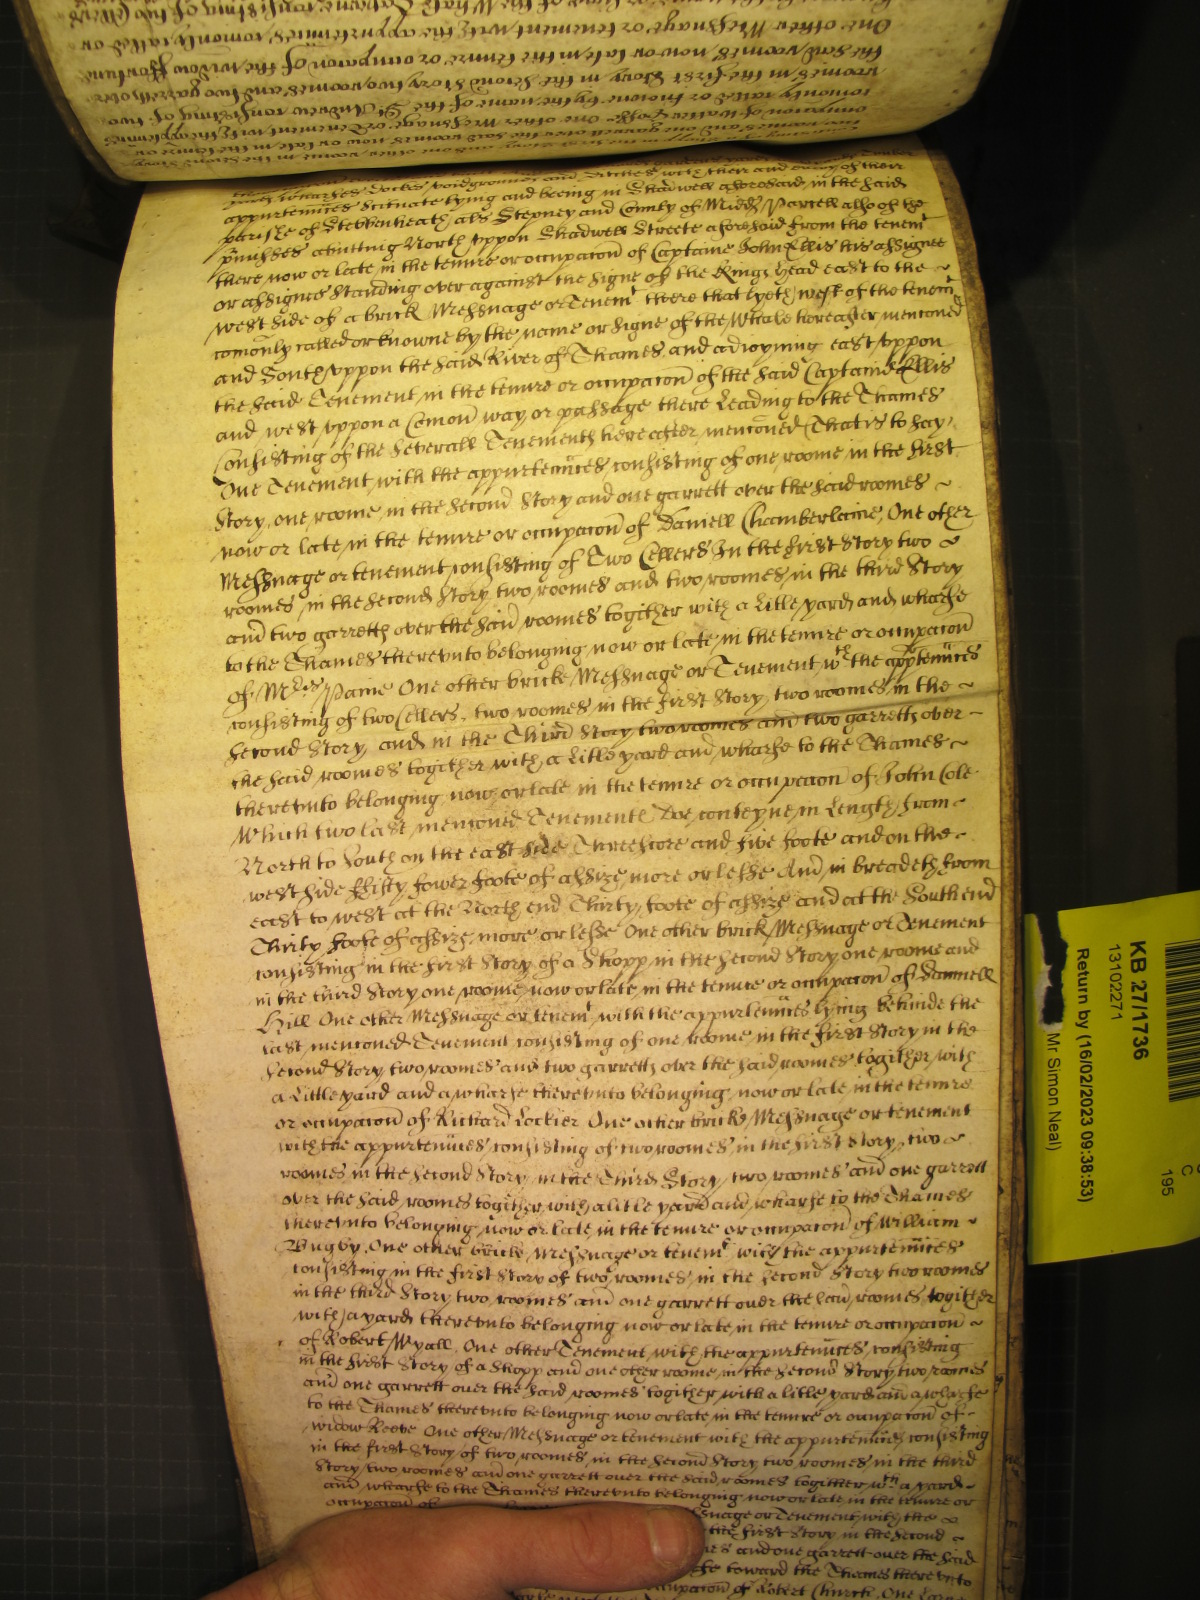 One other Messuage or tenement with the appurtenñces comonly called or
the said roomes now or late in the tenure or occupacon of the widow
roomes in the first Story in the second story two roomes and two garretts over
comonly called or knowne by the name of the St Andrew consisting of two
One other Messuage or Tenement with the
appurtenñces Scituate lying and beeing in Shadwell aforesaid in the said
parishe of Stebbenheath als Stepney and County of Midds Parcell alsoe of the
p̃misses abutting North vppon Shadwell Streete aforesaid from the tenemt
there now or late in the tenure or occupacon of Captaine John Ellis his assignee
or assignes standing over against the signe of the Kings head east to the
west side of a brick Messuage or Tenemt there that lyeth west of the tenemt
comonly called or knowne by the name or signe of the Whale hereafter menconed
and South vppon the said River of Thames and adioyning east vppon
the said Tenement in the tenure or occupacon of the said Captaine Ellis
and west vppon a Comon way or passage there Leading to the Thames
Consisting of the severall Tenements hereafter menconed (That is to say)
One Tenement with the appurtenñces consisting of one roome in the first
Story, one roome in the second Story and one garrett over the said roomes
now or late in the tenure or occupacon of Daniell Chamberlaine, One other
Messuage or tenement consisting of Two Cellers In the first Story two
roomes in the second Story two roomes and two roomes in the third Story
and two garretts over the said roomes togither with a Litle yard and wharfe
to the Thames therevnto belonging now or late in the tenure or occupacon
of Mrs Paine One other bricke Messuage or Tenement wth the apptenñces
consisting of two Cellers, two roomes in the first Story, two roomes in the
second Story, and in the Third Story two roomes and two garretts over
the said roomes togither with a Litle yard and wharfe to the Thames
therevnto belonging now or late in the tenure or occupacon of John Cole
Which two last menconed Tenements doe conteyne in Length from
North to South on the east side Threescore and five foote and on the
west side ffifty fower foote of assize more or lesse And in breadeth from
east to west at the North end Thirty foote of assize and at the South end
Thirty foote of assize more or lesse One other brick Messuage or Tenement
consisting in the first Story of a Shopp in the second Story one roome and
in the third Story one roome now or late in the tenure or occupacon of Daniell
Hill One other Messuage or tenemt with the appurtenñces lying behinde the
last menconed Tenement consisting of one roome in the first Story in the
second Story two roomes and two garretts over the said roomes togither with
a Little yard and a wharfe therevnto belonging now or late in the tenure
or occupacon of Richard Lockier One other brick Messuage or tenement
with the appurtenñces consisting of two roomes in the first Story, two
roomes in the second Story, in the Third Story two roomes and one garrett
over the said roomes togither with a litle yard and wharfe to the Thames
therevnto belonging now or late in the tenure or occupacon of William
Bugby, One other brick Messuage or tenemt with the appurtenñces
consisting in the first Story of two roomes, in the second Story two roomes
in the third Story two roomes and one garrett over the said roomes togither
with a yard therevnto belonging now or late in the tenure or occupacon
of Robert Wyall, One other Tenement with the appurtenñces consisting
in the first Story of a Shopp and one other roome, in the second Story two roomes
and one garrett over the said roomes togither with a litle yard and a wharfe
to the Thames therevnto belonging now or late in the tenure or occupacon of
widow Reeve One other Messuage or tenement with the appurtenñces consisting
in the first Story of two roomes, in the second Story two roomes in the third
Story two roomes and one garrett over the said roomes togither wth a yard
and wharfe to the Thames therevnto belonging now or late in the tenure or
occupacon of
Messuage or Tenement with the
the first Story in the second
and one garrett over the said
toward the Thames therevnto
occupacon of Robert Church, One
KB 27/1736
13102271
Return by (16/02/2023 09:38:53)
Mr Simon Neal)
C
195